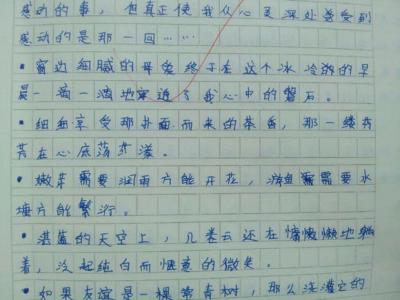 感动的事，但真正使我从心灵深处感受到
感动的是那一回……
·窗边细腻的母爱终于在这个冰冷的早
晨一滴一滴地穿透了我心中的磐石。
·细细享受那扑面而来的茶香，那一缕芬
芳在心底荡荡漾。
·嫩芽需要润雨方能开花，游鱼需要水
塘方能繁衍。
·湛蓝的天空上，几卷云还在慵懒地躺
着，泛起纯白而惬意的微笑。
·如果友谊是一棵常青树，那么浇灌它的